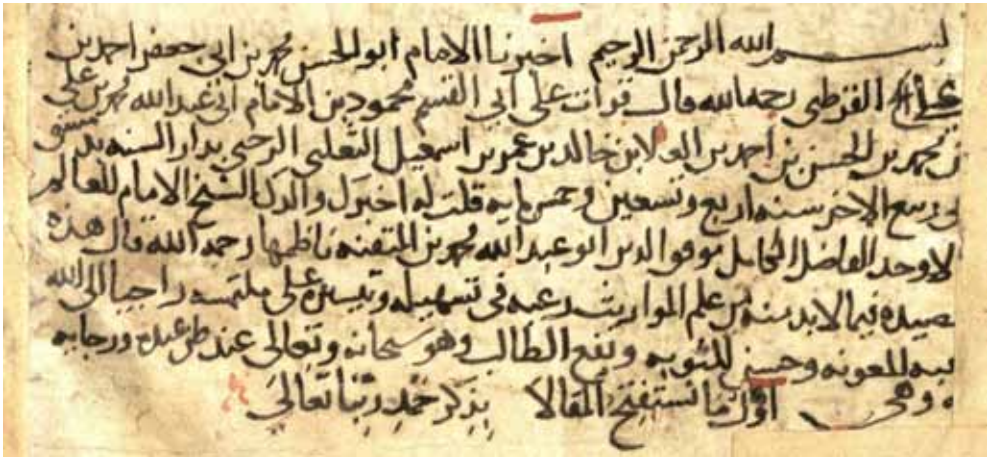 بسم الله الرحمن الرحيم اخبرنا الامام ابو الحسن محمد بن ابي جعفر احمد بن
علي القرطبي رحمه الله قال قرات على ابي القسم محمود بن الامام ابي عبد الله محمد بن علي
بن محمد بن الحسن بن احمد بن ابن خالد بن عمر بن اسمعيل التغلبي الرحبي بدار السنه بدمشق
ربيع الاخر سنه اربع وتسعين وخمس مايه قلت له اخبرك والدك الشيخ الامام العالم
لاوحد الفاضل الكامل موفق الدين ابو عبد الله محمد بن المتقنه ناظمها رحمه الله قال هذه
صيده فيما لا بد منه من علم المواريث رغبه في تسهيله وتيسيره على ملتمسه راجيا الى الله
فيه للمعونه وحسن للمثوبه ونفع الطالب وهو سبحانه وتعالى عند ظن عبده ورجايه
وهي اول ما نستفتح المقالا بذكر حمد ربنا تعالى